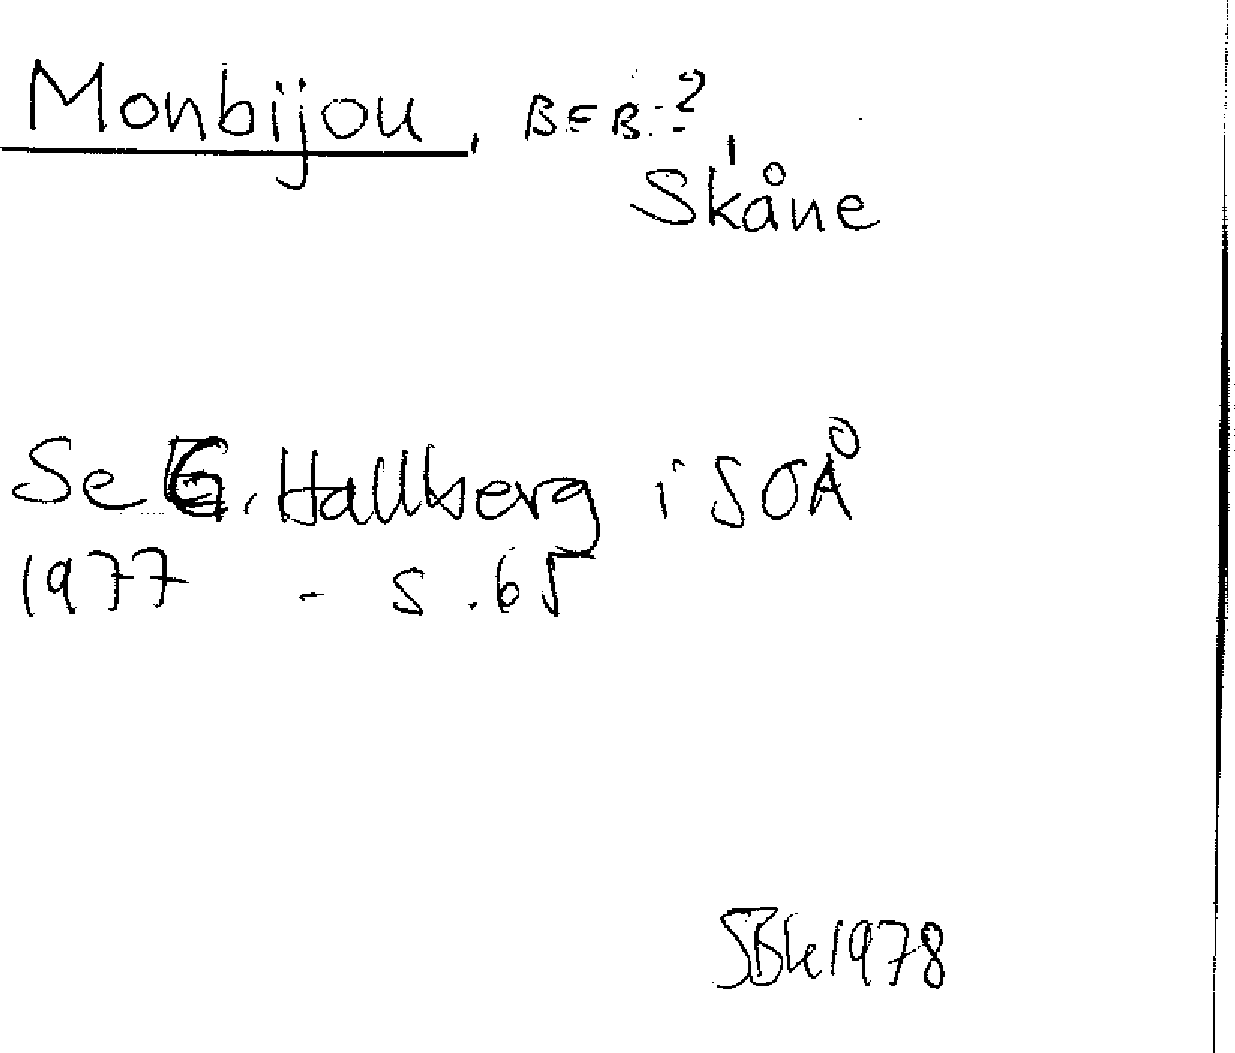 Monbijou, BEB.?,
Skåne
Se G. Hallberg i SOÅ
1977 - s.65
SBk1978